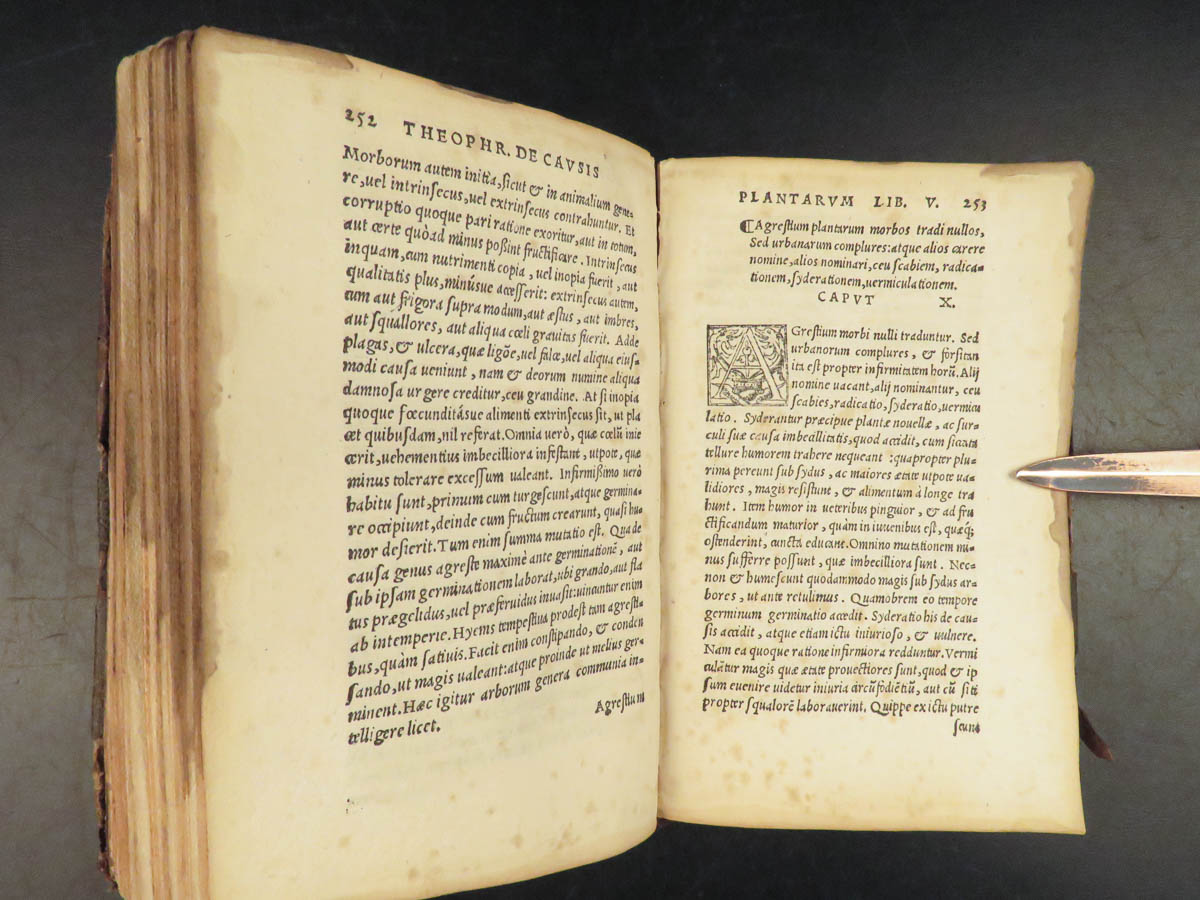 252 THEOPHR. DE CAVSIS
Morborum autem initia, sicut & in animalium gene-
re, uel intrinsecus, uel extrinsecus contrahuntur. Et
corruptio quoque pari ratione exoritur, aut in totum,
aut certe quòad minus poßint fructificare. Intrinsecus
inquam, cum nutrimenti copia, uel inopia fuerit, aut
qualitatis plus, minúsue accesserit: extrinsecus autem,
cum aut frigora supra modum, aut æstus, aut imbres,
aut squallores, aut aliqua cœli grauitas fuerit. Adde
plagas, & ulcera, quæ ligōe, uel falce, uel aliqua eius-
modi causa ueniunt, nam & deorum numine aliqua
damnosa urgere creditur, ceu grandine. At si inopia
quoque fœcunditásue alimenti extrinsecus sit, ut pla
cet quibusdam, nil referat. Omnia uerò, quæ cœlū inie
cerit, uehementius imbecilliora infestant, utpote, quæ
minus tolerare excessum ualeant. Infirmißimo uerò
habitu sunt, primum cum turgescunt, atque germina-
re occipiunt, deinde cum fructum crearunt, quasi hu-
mor desierit. Tum enim summa mutatio est. Qua de
causa genus agreste maximè ante germinationē, aut
sub ipsam germinationem laborat, ubi grando, aut fla
tus prægelidus, uel præferuidus inuasit: uincuntur enim
ab intemperie. Hyems tempestiua prodest tam agresti-
bus, quàm satiuis. Facit enim constipando, & conden
sando, ut magis ualeant: atque proinde ut melius ger-
minent. Hæc igitur arborum genera communia in-
telligere licet.
Agrestium
PLANTARVM LIB. V. 253
¶Agrestium plantarum morbos tradi nullos,
Sed urbanarum complures: atque alios carere
nomine, alios nominari, ceu scabiem, radica-
tionem, syderationem, uermiculationem.
CAPVT X.
AGrestium morbi nulli traduntur. Sed
urbanorum complures, & forsitan
ita est propter infirmitatem horū. Alij
nomine uacant, alij nominantur, ceu
scabies, radicatio, syderatio, uermicu
latio. Syderantur præcipue plantæ nouellæ, ac sur-
culi suæ causa imbecillitatis, quod accidit, cum siccata
tellure humorem trahere nequeant: quapropter plu-
rima pereunt sub sydus, ac maiores ætate utpote ua-
lidiores, magis resistunt, & alimentum à longe tra
hunt. Item humor in ueteribus pinguior, & ad fru
ctificandum maturior, quàm in iuuenibus est, quæq;
ostenderint, cuncta educant. Omnino mutationem mi-
nus sufferre possunt, quæ imbecilliora sunt. Nec-
non & humescunt quodammodo magis sub sydus ar-
bores, ut ante retulimus. Quamobrem eo tempore
germinum germinatio accedit. Syderatio his de cau-
sis accidit, atque etiam ictu iniurioso, & uulnere.
Nam ea quoque ratione infirmiora redduntur. Vermi
culātur magis quæ ætate prouectiores sunt, quod & ip
sum euenire uidetur iniuria circūfodiētiū, aut cū siti
propter squalorē laborauerint. Quippe ex ictu putre
scunt